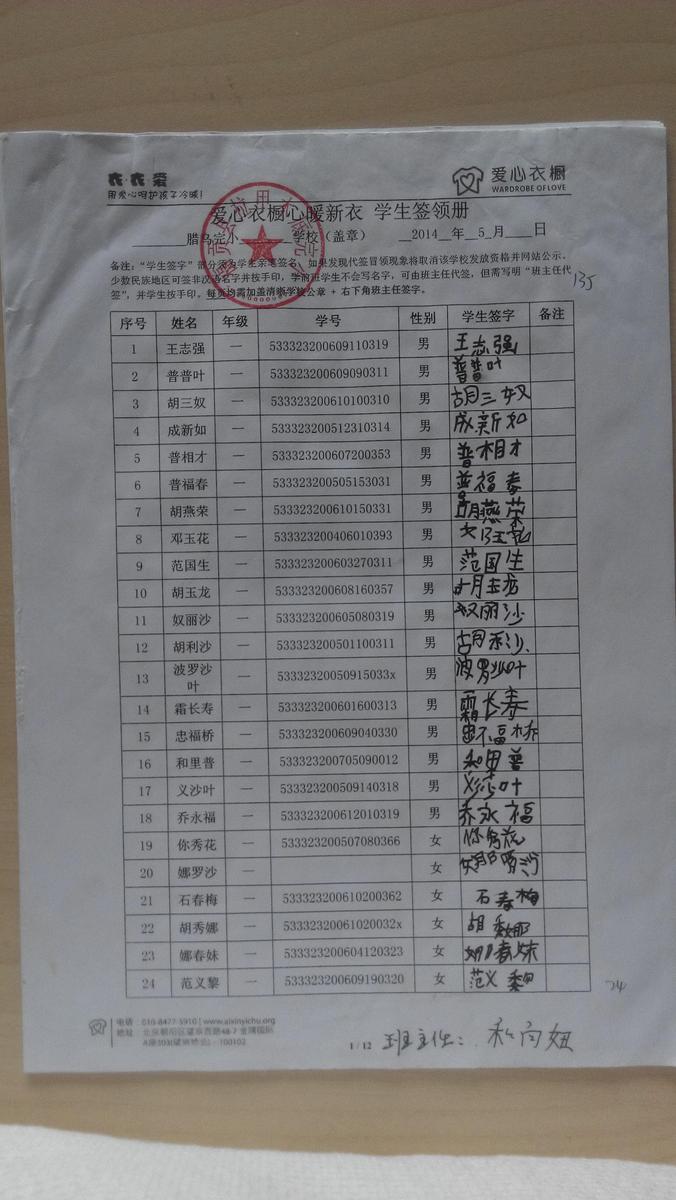 衣·衣 爱
用爱心呵护孩子冷暖!
爱心衣橱
WARDROBE OF LOVE
爱心衣橱心暖新衣 学生签领册
腊乌完小 学校（盖章） 2014 年 5 月 日
备注：“学生签字”部分须为学生亲笔签名，如果发现代签冒领现象将取消该学校发放资格并网站公示。
少数民族地区可签非汉语名字并按手印，学前班学生不会写名字，可由班主任代签，但需写明“班主任代
签”，并学生按手印。每页均需加盖清晰学校公章 + 右下角班主任签字。
135
序号 姓名 年级 学号 性别 学生签字 备注
1 王志强 一 533323200609110319 男 王志强
2 普普叶 一 533323200609090311 男 普普叶
3 胡三奴 一 533323200610100310 男 胡三奴
4 成新如 一 533323200512310314 男 成新如
5 普相才 一 533323200607200353 男 普相才
6 普福春 一 533323200505153031 男 普福春
7 胡燕荣 一 533323200610150331 男 胡燕荣
8 邓玉花 一 533323200406010393 男
9 范国生 一 533323200603270311 男 范国生
10 胡玉龙 一 533323200608160357 男 胡玉龙
11 奴丽沙 一 533323200605080319 男 奴丽沙
12 胡利沙 一 533323200501100311 男 胡利沙
13 波罗沙叶 一 53332320050915033x 男
14 霜长寿 一 533323200601600313 男 霜长寿
15 忠福桥 一 533323200609040330 男
16 和里普 一 533323200705090012 男 和里普
17 义沙叶 一 533323200509140318 男 义沙叶
18 乔永福 一 533323200612010319 男 乔永福
19 你秀花 一 533323200507080366 女 你秀花
20 娜罗沙 一 女
21 石春梅 一 533323200610200362 女 石春梅
22 胡秀娜 一 53332320061020032x 女 胡秀娜
23 娜春妹 一 533323200604120323 女 娜春妹
24 范义黎 一 533323200609190320 女 范义黎
24
电话：010-8477-5910 | www.aixinyichu.org
地址：北京朝阳区望京西路48-7 金隅国际
A座303(望京地心) - 100102
1 / 12
班主任：